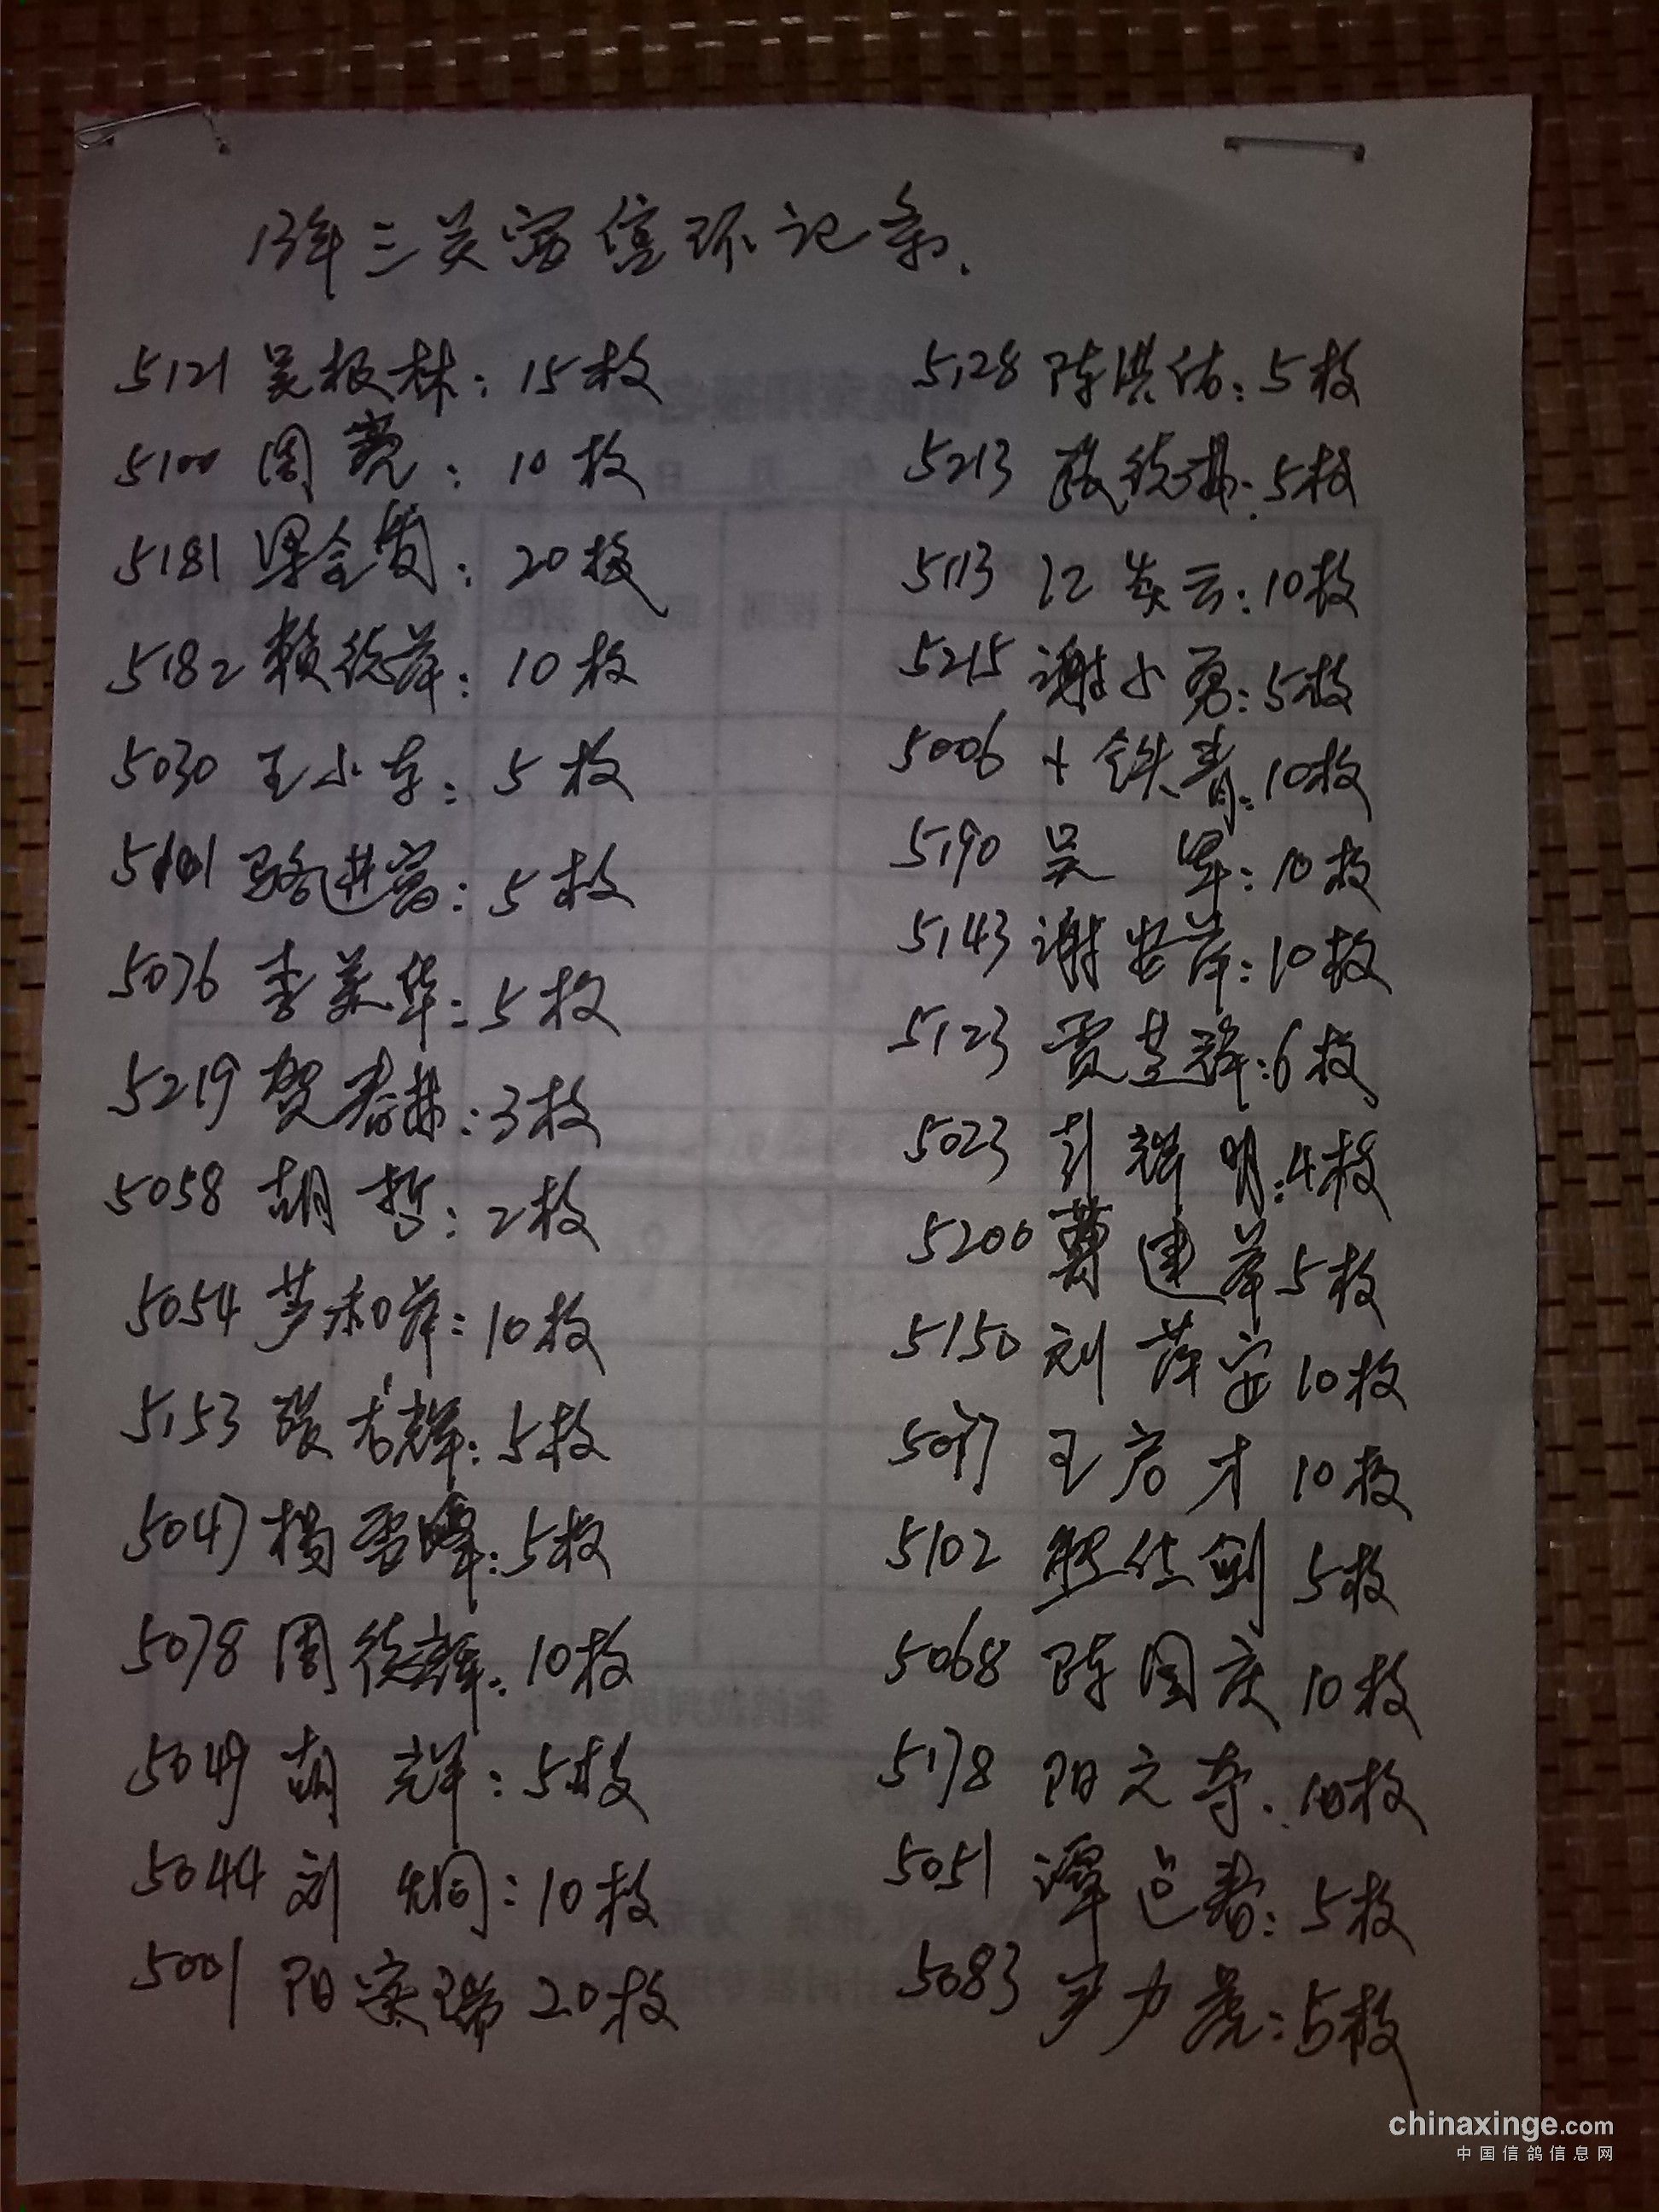 13年三关赛信环记录.
5121 吴根林:15枚
5100 周亮:10枚
5181 梁金茂:20枚
5182 赖德萍:10枚
5030 王小车:5枚
5101 骆进富:5枚
5076 李美华:5枚
5219 贺春林:3枚
5058 胡哲:2枚
5054 芦和萍:10枚
5153 张光辉:5枚
5047 杨雪峰:5枚
5078 周德辉:10枚
5049 胡辉:5枚
5044 刘炯:10枚
5001 阳寅瑞 20枚
5128 陈洪佑:5枚
5213 5枚
5113 江炎云:10枚
5215 谢小勇:5枚
5006 卜铁青:10枚
5190 吴军:10枚
5143 谢安萍:10枚
5123 贾芝辉:6枚
5023 彭辉明:4枚
5200 建萍 5枚
5150 刘萍安 10枚
王启才 10枚
5102 熊仕剑 5枚
5068 陈国庆 10枚
5178 阳元寿.10枚
5051 谭 春:5枚
5083 尹力虎:5枚
chinaxinge.com
中国信鸽信息网